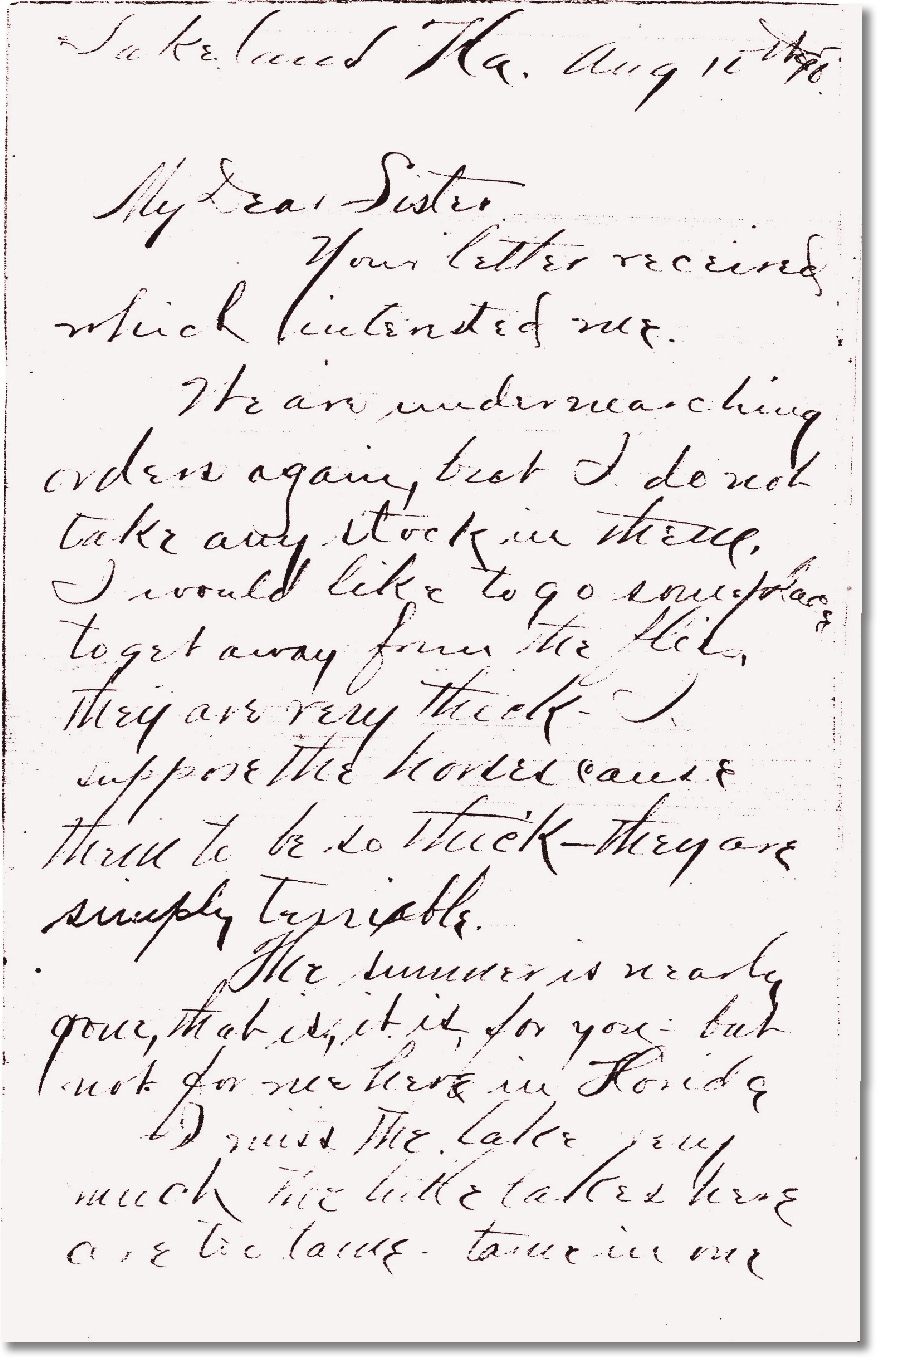 Lakeland Fla. Aug
My Dear Sister
Your letter received
which interested me.
We are under marching
orders again, but I do not
take any stock in them.
I would like to go someplace
to get away from the flies,
they are very thick - I
suppose the horses cause
them to be so thick - they are
simply terrible.
The summer is nearly
gone, that is, it is, for you - but
not for me here in Florida
I miss the lake very
much the little lakes here
are too tame - tame in one